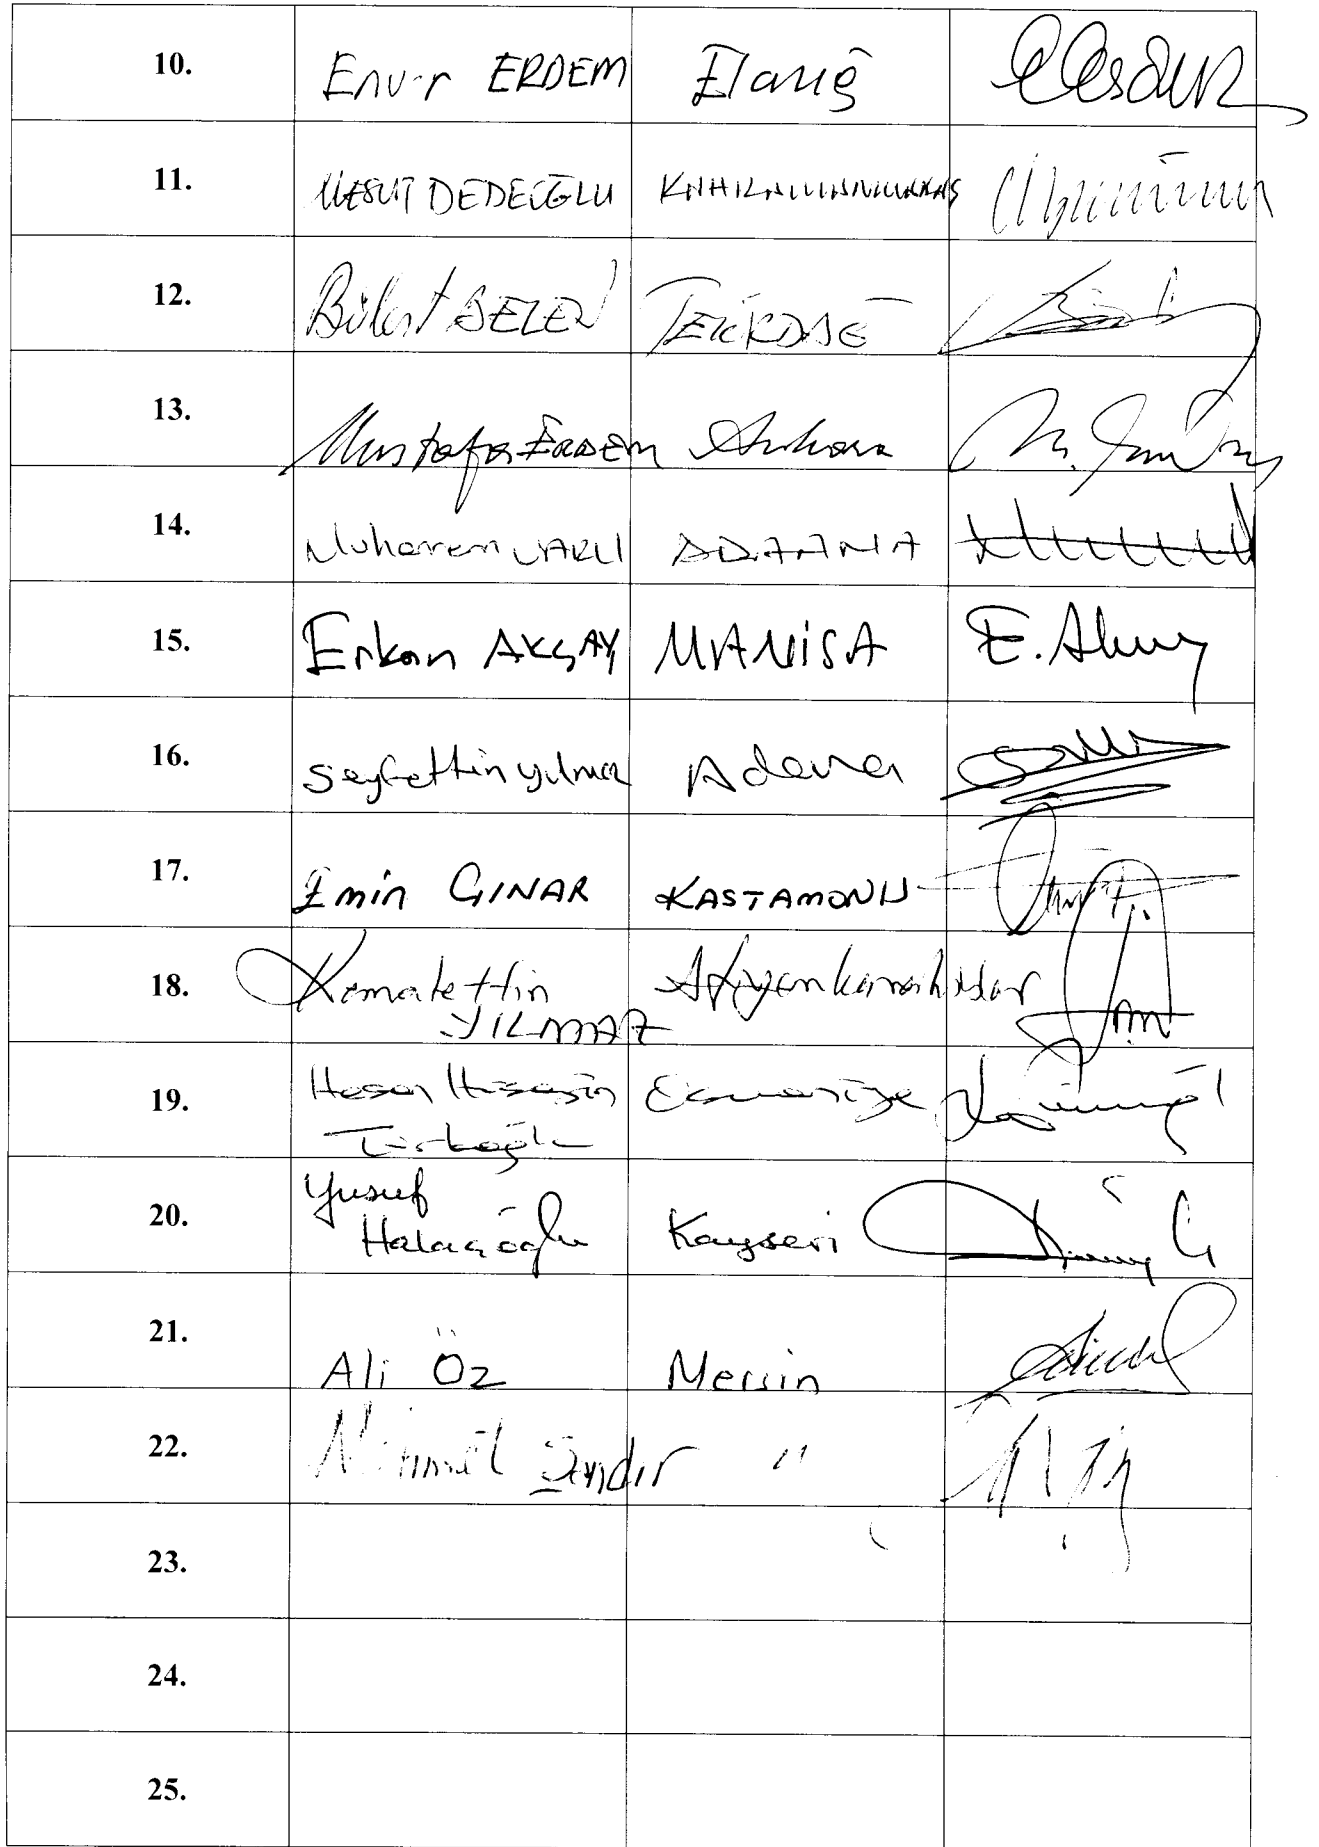 10. Enver ERDEM Elazığ
11. MESUT DEDEOĞLU KAHRAMANMARAŞ
12. Bülent BELEN TEKİRDAĞ
13. Mustafa ERDEM Ankara
14. Muharrem VARLI ADANA
15. Erkan AKÇAY MANİSA E. Akçay
16. Seyfettin yılmaz Adana
17. Emin ÇINAR KASTAMONU
18. Kemalettin Afyonkarahisar
YILMAZ
19. Hasan Hüseyin Osmaniye
Türkoğlu
20. Yusuf
Halaçoğlu Kayseri
21. Ali Öz Mersin
22. Mehmet Şandır "
23.
24.
25.